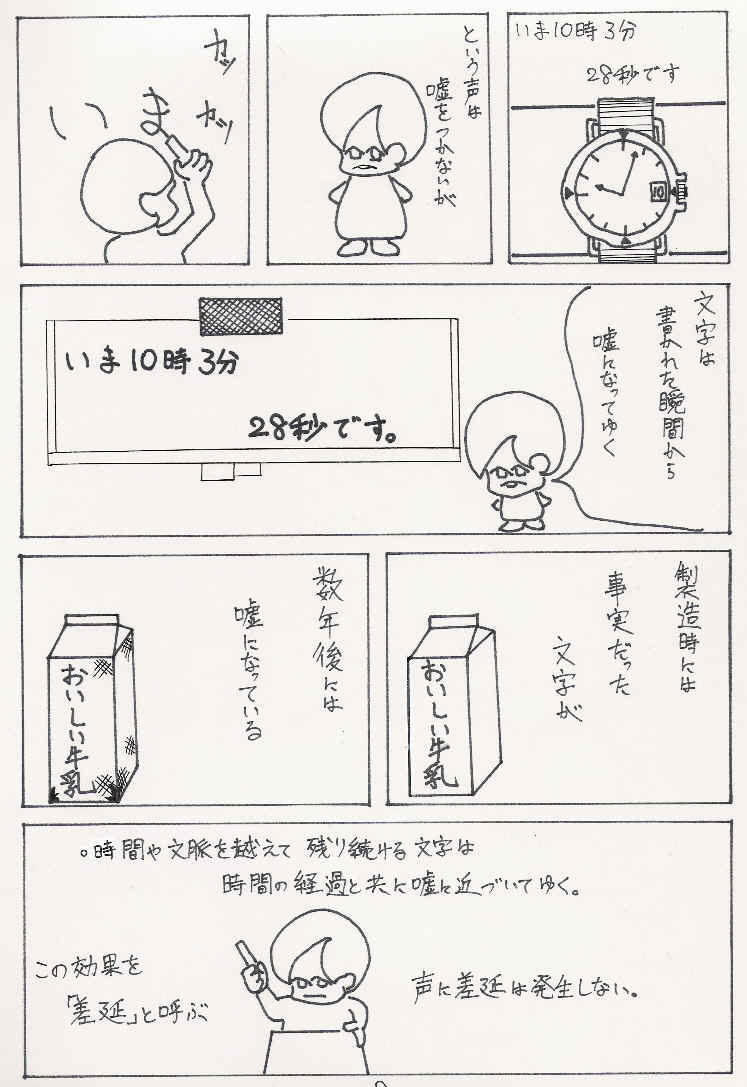 いま10時3分
28秒です
10
という声は
嘘をつかないが
カッ
カッ
いま
文字は
書かれた瞬間から
嘘になってゆく
いま10時3分
28秒です。
製造時には
事実だった
文字が
おいしい牛乳
数年後には
嘘になっている
おいしい牛乳
。時間や文脈を越えて残り続ける文字は
時間の経過と共に嘘に近づいてゆく。
この効果を
「差延」と呼ぶ
声に差延は発生しない。